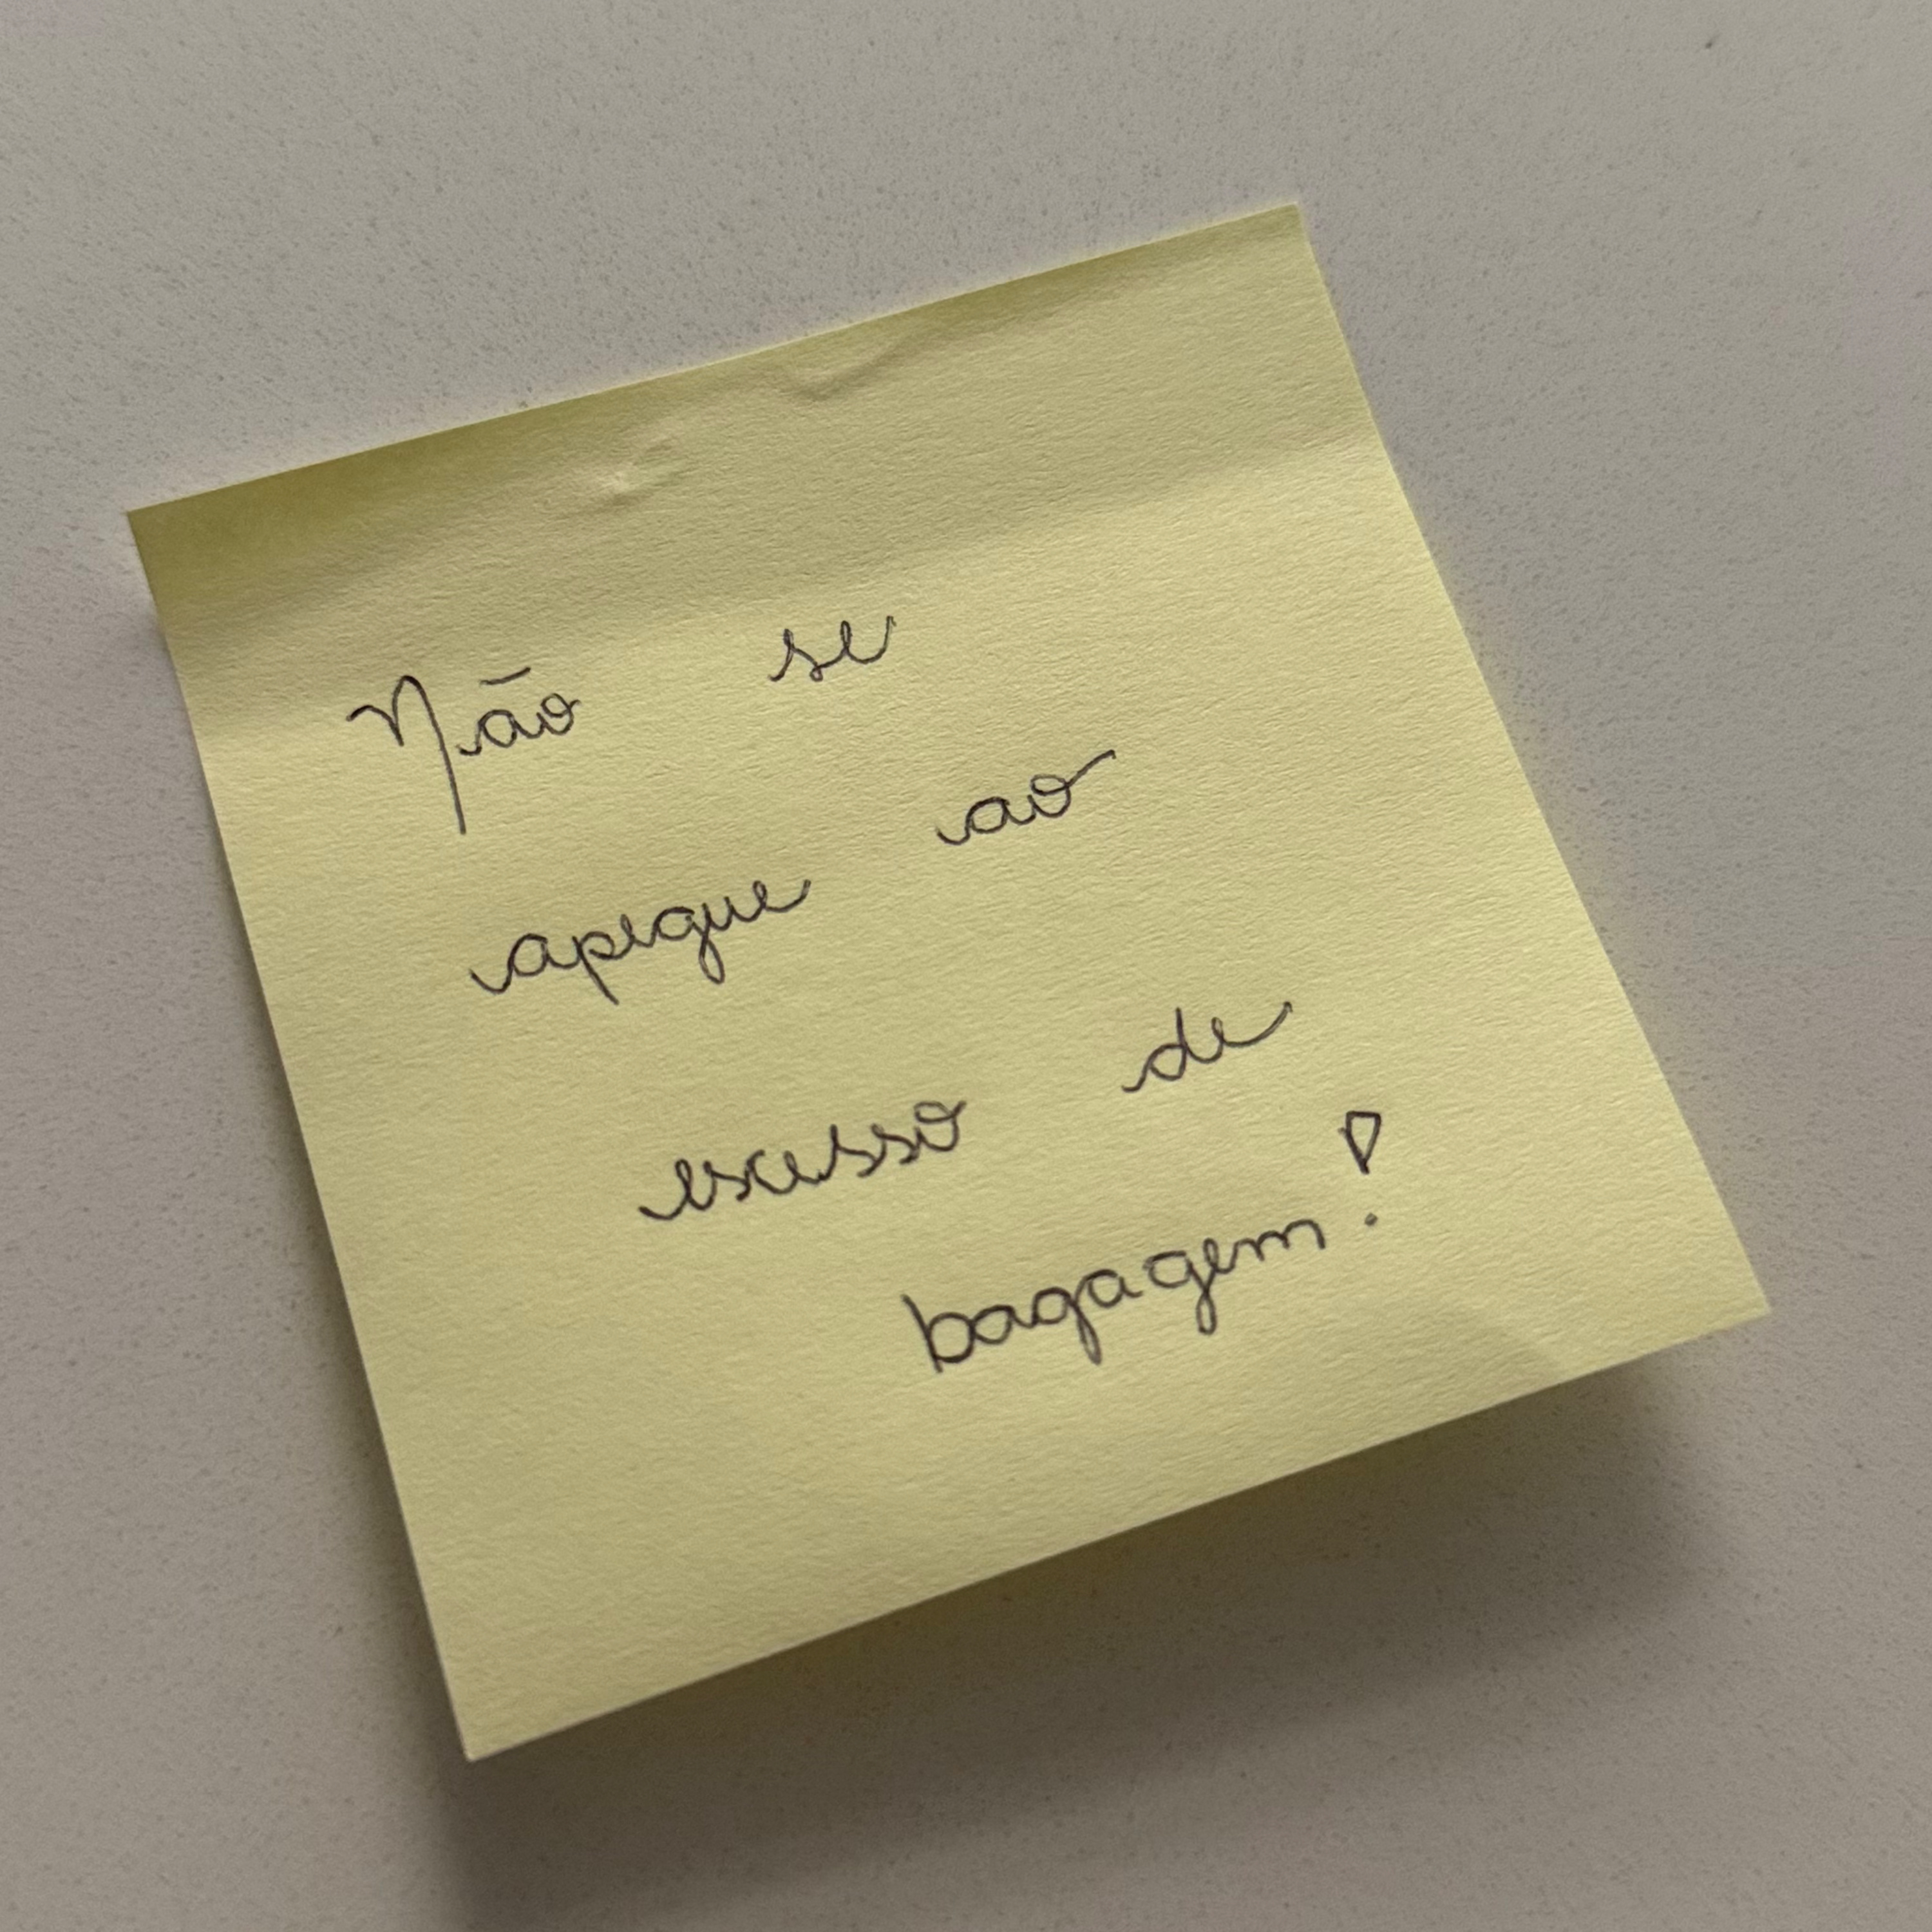 Não se
apegue ao
excesso de
bagagem!